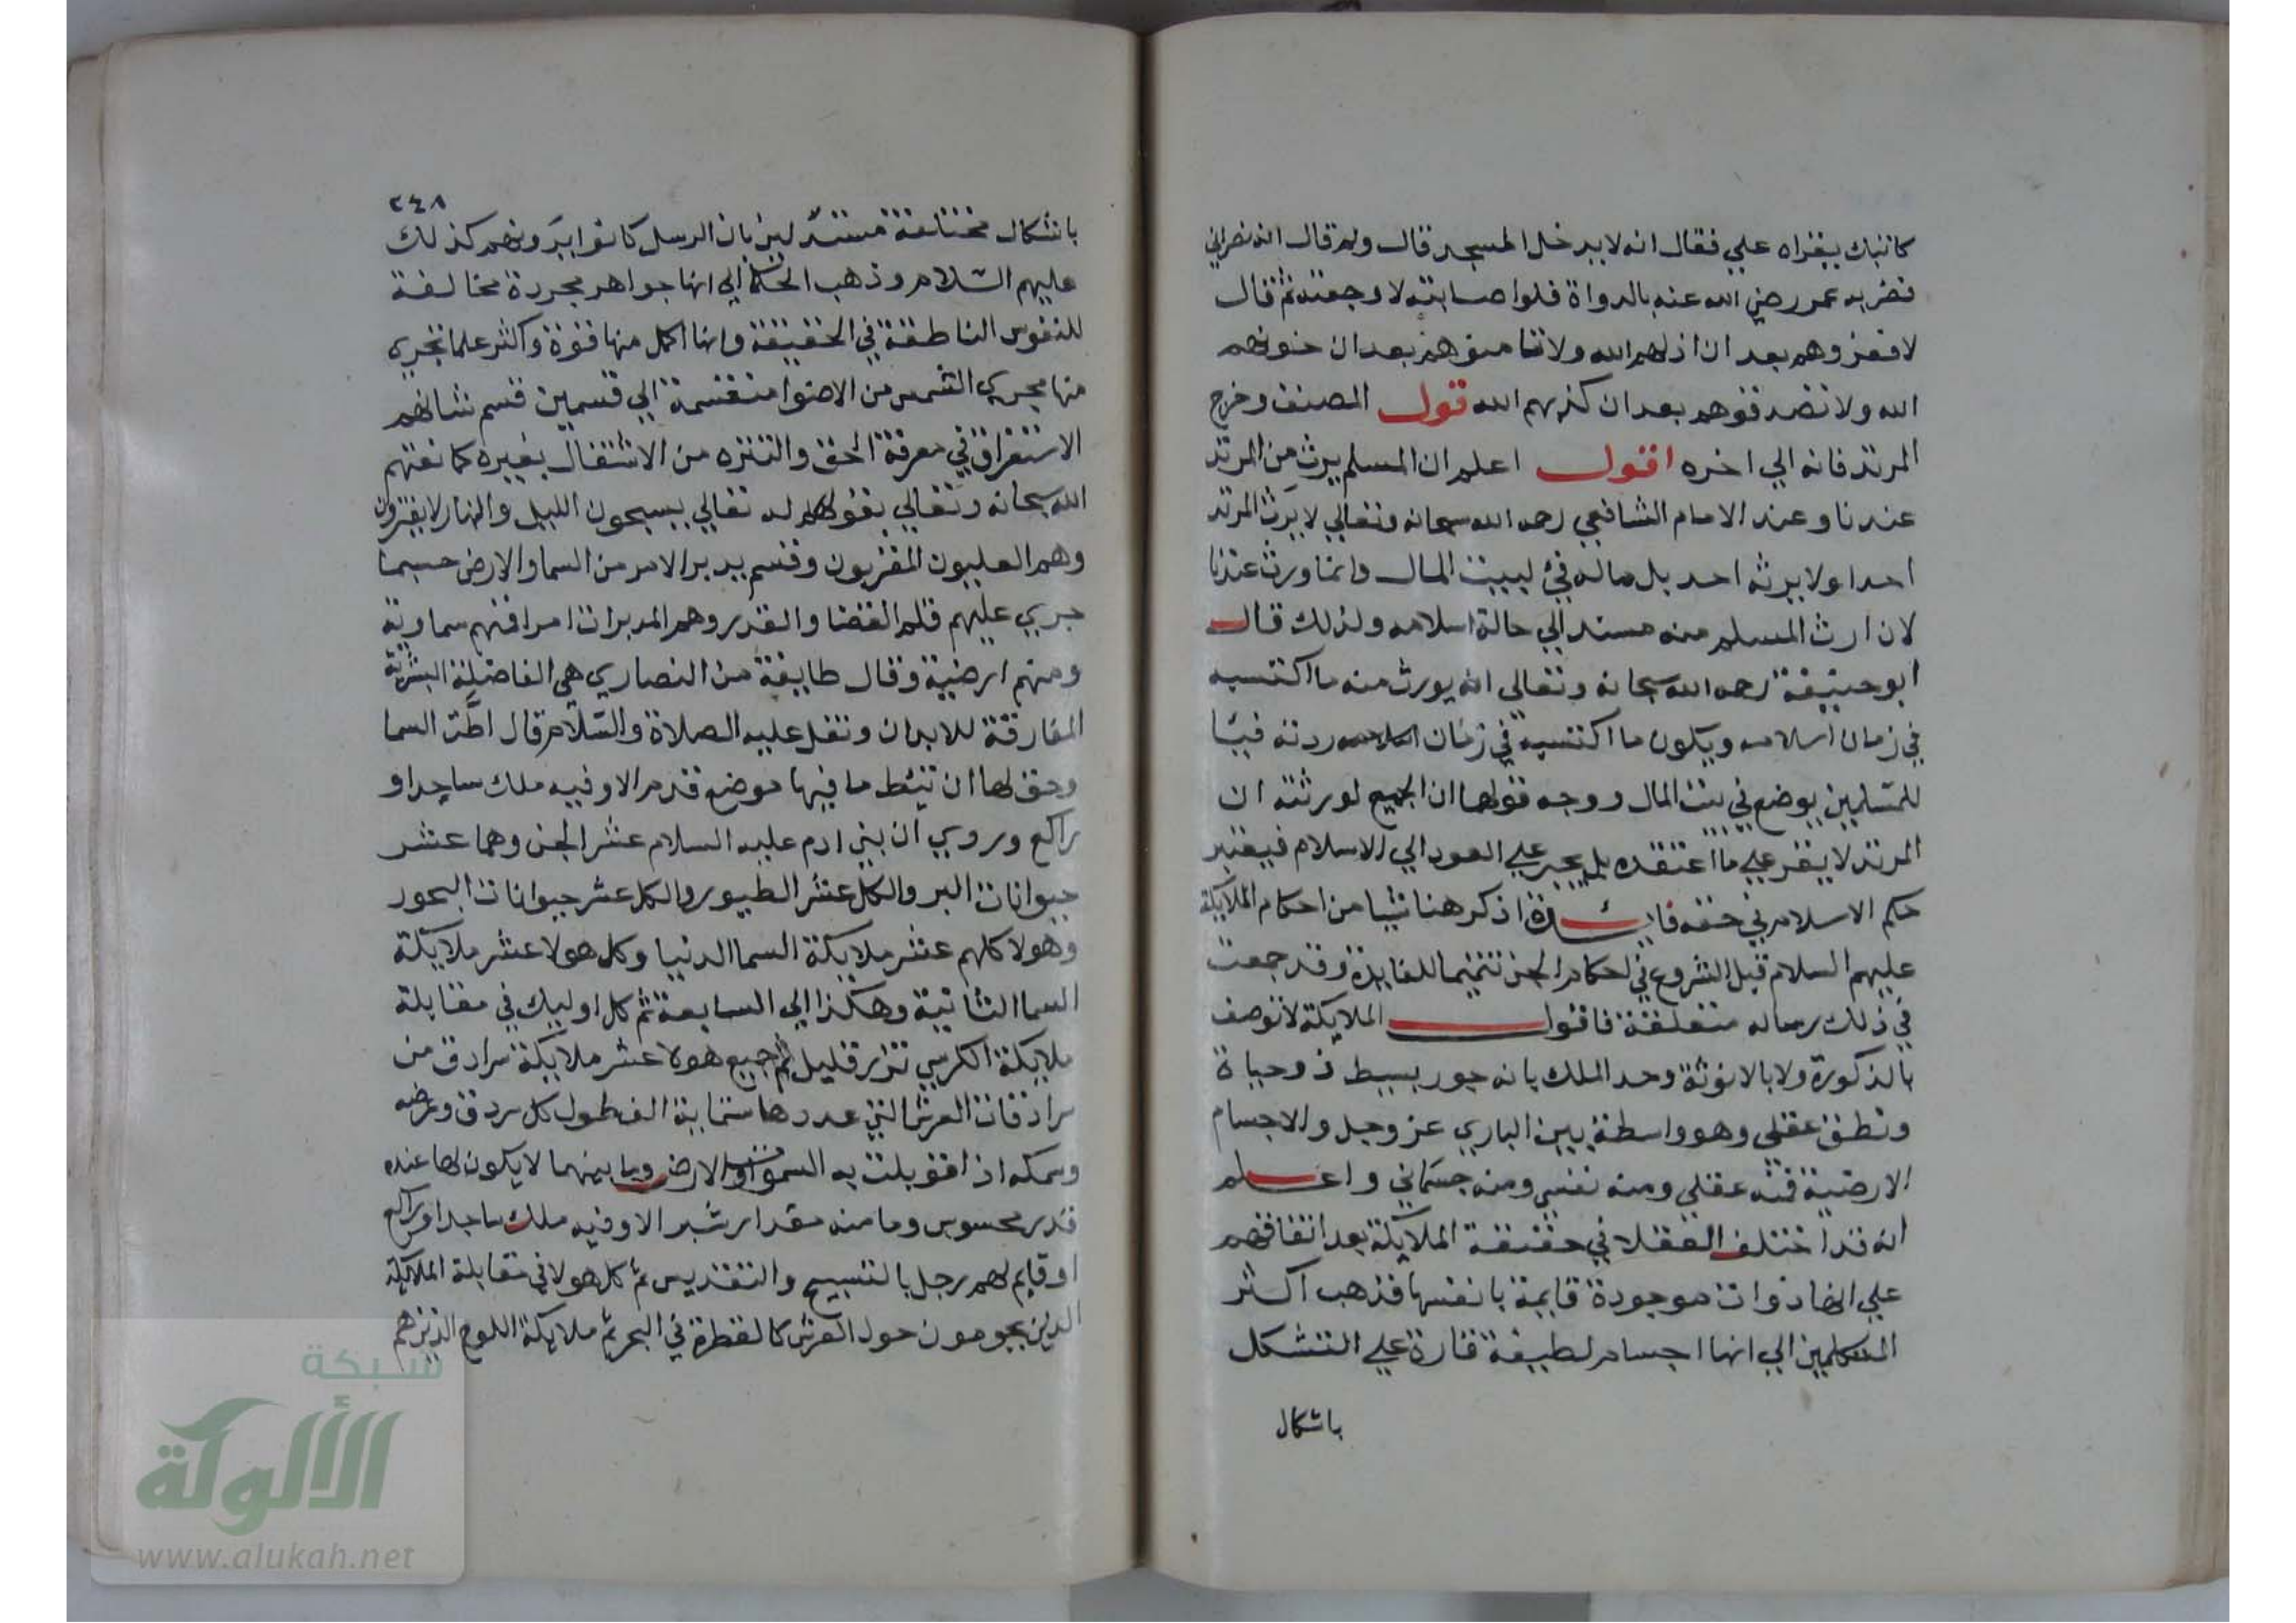 كاتبك يقراه علي فقال انه لا يدخل المسجد قال ولم قال انه نصراني
فضربه عمر رضي الله عنه بالدواة فلو اصابته لاوجعته ثم قال
لا تعزوهم بعد ان اذلهم الله ولا تامنوهم بعد ان خونهم
الله ولا تصدقوهم بعد ان كذبهم الله قول المصنف وخرج
المرتد فانه الي اخره اقول اعلم ان المسلم يرث من المرتد
عندنا وعند الامام الشافعي رحمه الله سبحانه وتعالي لا يرث المرتد
احدا ولا يرثه احد بل ماله في لبيت المال وانما ورث عندنا
لان ارث المسلم منه مستند الي حالة اسلامه ولذلك قال
ابو حنيفة رحمه الله سبحانه وتعالي انه يورث منه ما اكتسبه
في زمان اسلامه ويكون ما اكتسبه في زمان ردته فيئا
للمسلمين يوضع في بيت المال ووجه قولهما ان الجميع لورثته ان
المرتد لا يقر علي ما اعتقده بل يجبر علي العود الي الاسلام فيعتبر
حكم الاسلام في حقه فايدة اذكر هنا شيا من احكام الملايكة
عليهم السلام قبل الشروع في احكام الجن تتميما للفايدة وقد جمعت
في ذلك رساله متعلقة فاقول الملايكة لا توصف
بالذكورة ولا بالانوثة وحد الملك بانه جوهر بسيط ذو حياة
ونطق عقلي وهو واسطة بين الباري عز وجل والاجسام
الارضية فمنه عقلي ومنه نفسي ومنه جسماني واعلم
انه قد اختلف العقلا في حقيقة الملايكة بعد اتفاقهم
علي انها ذوات موجودة قايمة بانفسها فذهب اكثر
المتكلمين الي انها اجسام لطيفة قادرة علي التشكل
باشكال
٢٤٨
باشكال مختلفة مستدلين بان الرسل كانوا يرونهم كذلك
عليهم السلام وذهب الحكما الي انها جواهر مجردة مخالفة
للنفوس الناطقة في الحقيقة وانها اكمل منها قوة واكثر علما تجري
منها مجري الشمس من الاضوا منقسمة الي قسمين قسم شانهم
الاستغراق في معرفة الحق والتنزه من الاشتغال بغيره كما نعتهم
الله سبحانه وتعالي بقوله تعالي يسبحون الليل والنهار لا يفترون
وهم العليون المقربون وقسم يدبر الامر من السما والارض حسبما
جري عليهم قلم القضا والقدر وهم المدبرات امرا فمنهم سماوية
ومنهم ارضية وقال طايفة من النصاري هي الفاضلة البشرية
المفارقة للابدان ونقل عليه الصلاة والسلام قال اطت السما
وحق لها ان تئط ما فيها موضع قدم الا وفيه ملك ساجد او
راكع وروي ان بني ادم عليه السلام عشر الجن وهما عشر
حيوانات البر والكل عشر الطيور والكل عشر حيوانات البحور
وهولا كلهم عشر ملايكة السما الدنيا وكل هولا عشر ملايكة
السما الثانية وهكذا الي السابعة ثم كل اوليك في مقابلة
ملايكة الكرسي نزر قليل ثم جميع هولا عشر ملايكة سرادق من
سرادقات العرش التي عددها ستماية الف طول كل سردق وعرضه
وسمكه اذا قوبلت به السموات والارض وما بينهما لا يكون لها عنده
قدر محسوس وما منه مقدار شبر الا وفيه ملك ساجد او راكع
او قايم لهم زجل بالتسبيح والتقديس ثم كل هولا في مقابلة الملايكة
الذين يحومون حول العرش كالقطرة في البحر ثم ملايكة اللوح الذين هم
شبكة
الألوكة
www.alukah.net